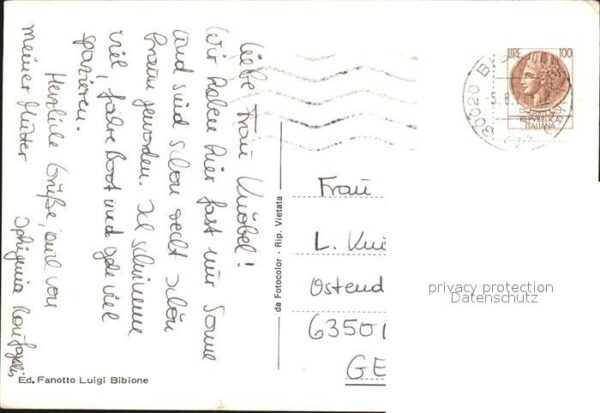 Liebe Frau Knöbel!
Wir haben hier fast nur Sonne
und sind schon recht schön
braun geworden. Ich schwimme
viel, fahre Boot und gehe viel
spazieren.
Herzliche Grüße, auch von
meiner Mutter
Ed. Fanotto Luigi Bibione
da Fotocolor - Rip. Vietata
LIRE 100
REPVBBLICA
ITALIANA
30020
Frau
L. Knö
Ostend
6350
GE
privacy protection
Datenschutz